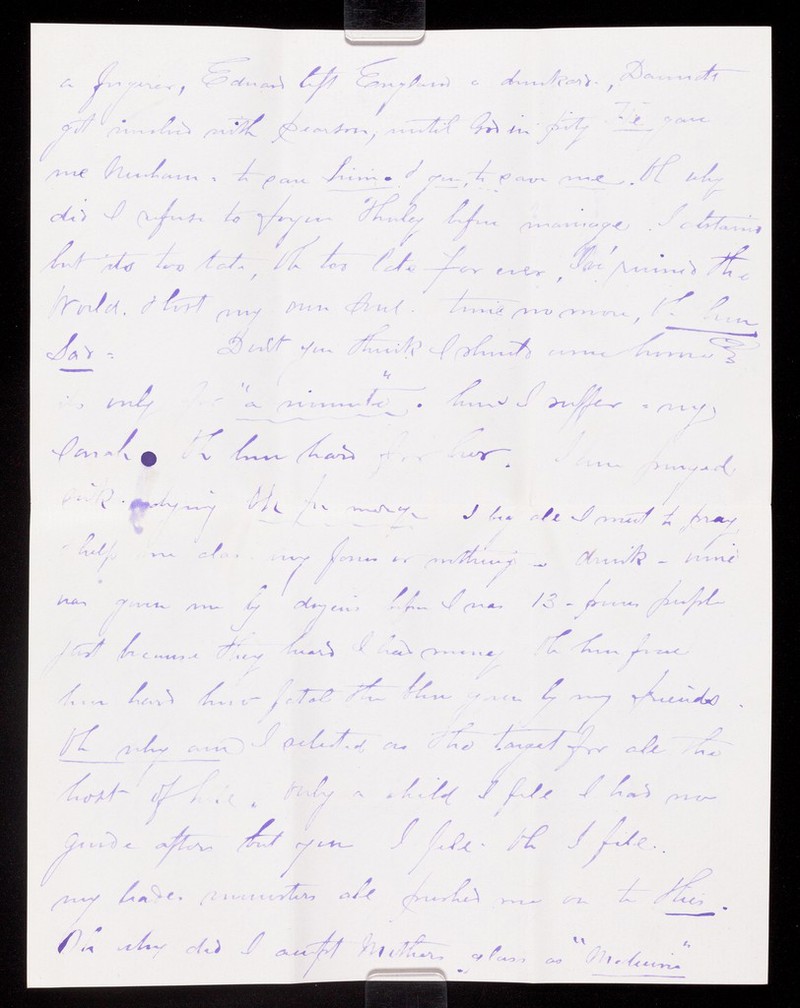 a forgerer, Edward left England a drunkard,
got involved with Pearson, until God in pity He gave
me to save him. & you, to save me. Oh why
did I refuse to before marriage. I abstained
but its too late, Oh too late for ever, I've ruined the
World. & lost my own Soul. time no more, Oh how
Sad - Don't you think I should come home
is only for "a minute". how I suffer - my
Sarah. Oh how hard for her. I am
sick. dying Oh for mercy I beg all I meet to pray
help me my or nothing - drink - wine
was given me by before I was 13 -
just because they heard I had money Oh how
how hard how fatal the blow given by my friends.
Oh why am I selected as the target for all the
host of hell. only a child I fell I had no
guide after but you I fell. Oh I fell.
my ministers all pushed me on to this.
Oh why did I accept Mothers glass as "Medicine"